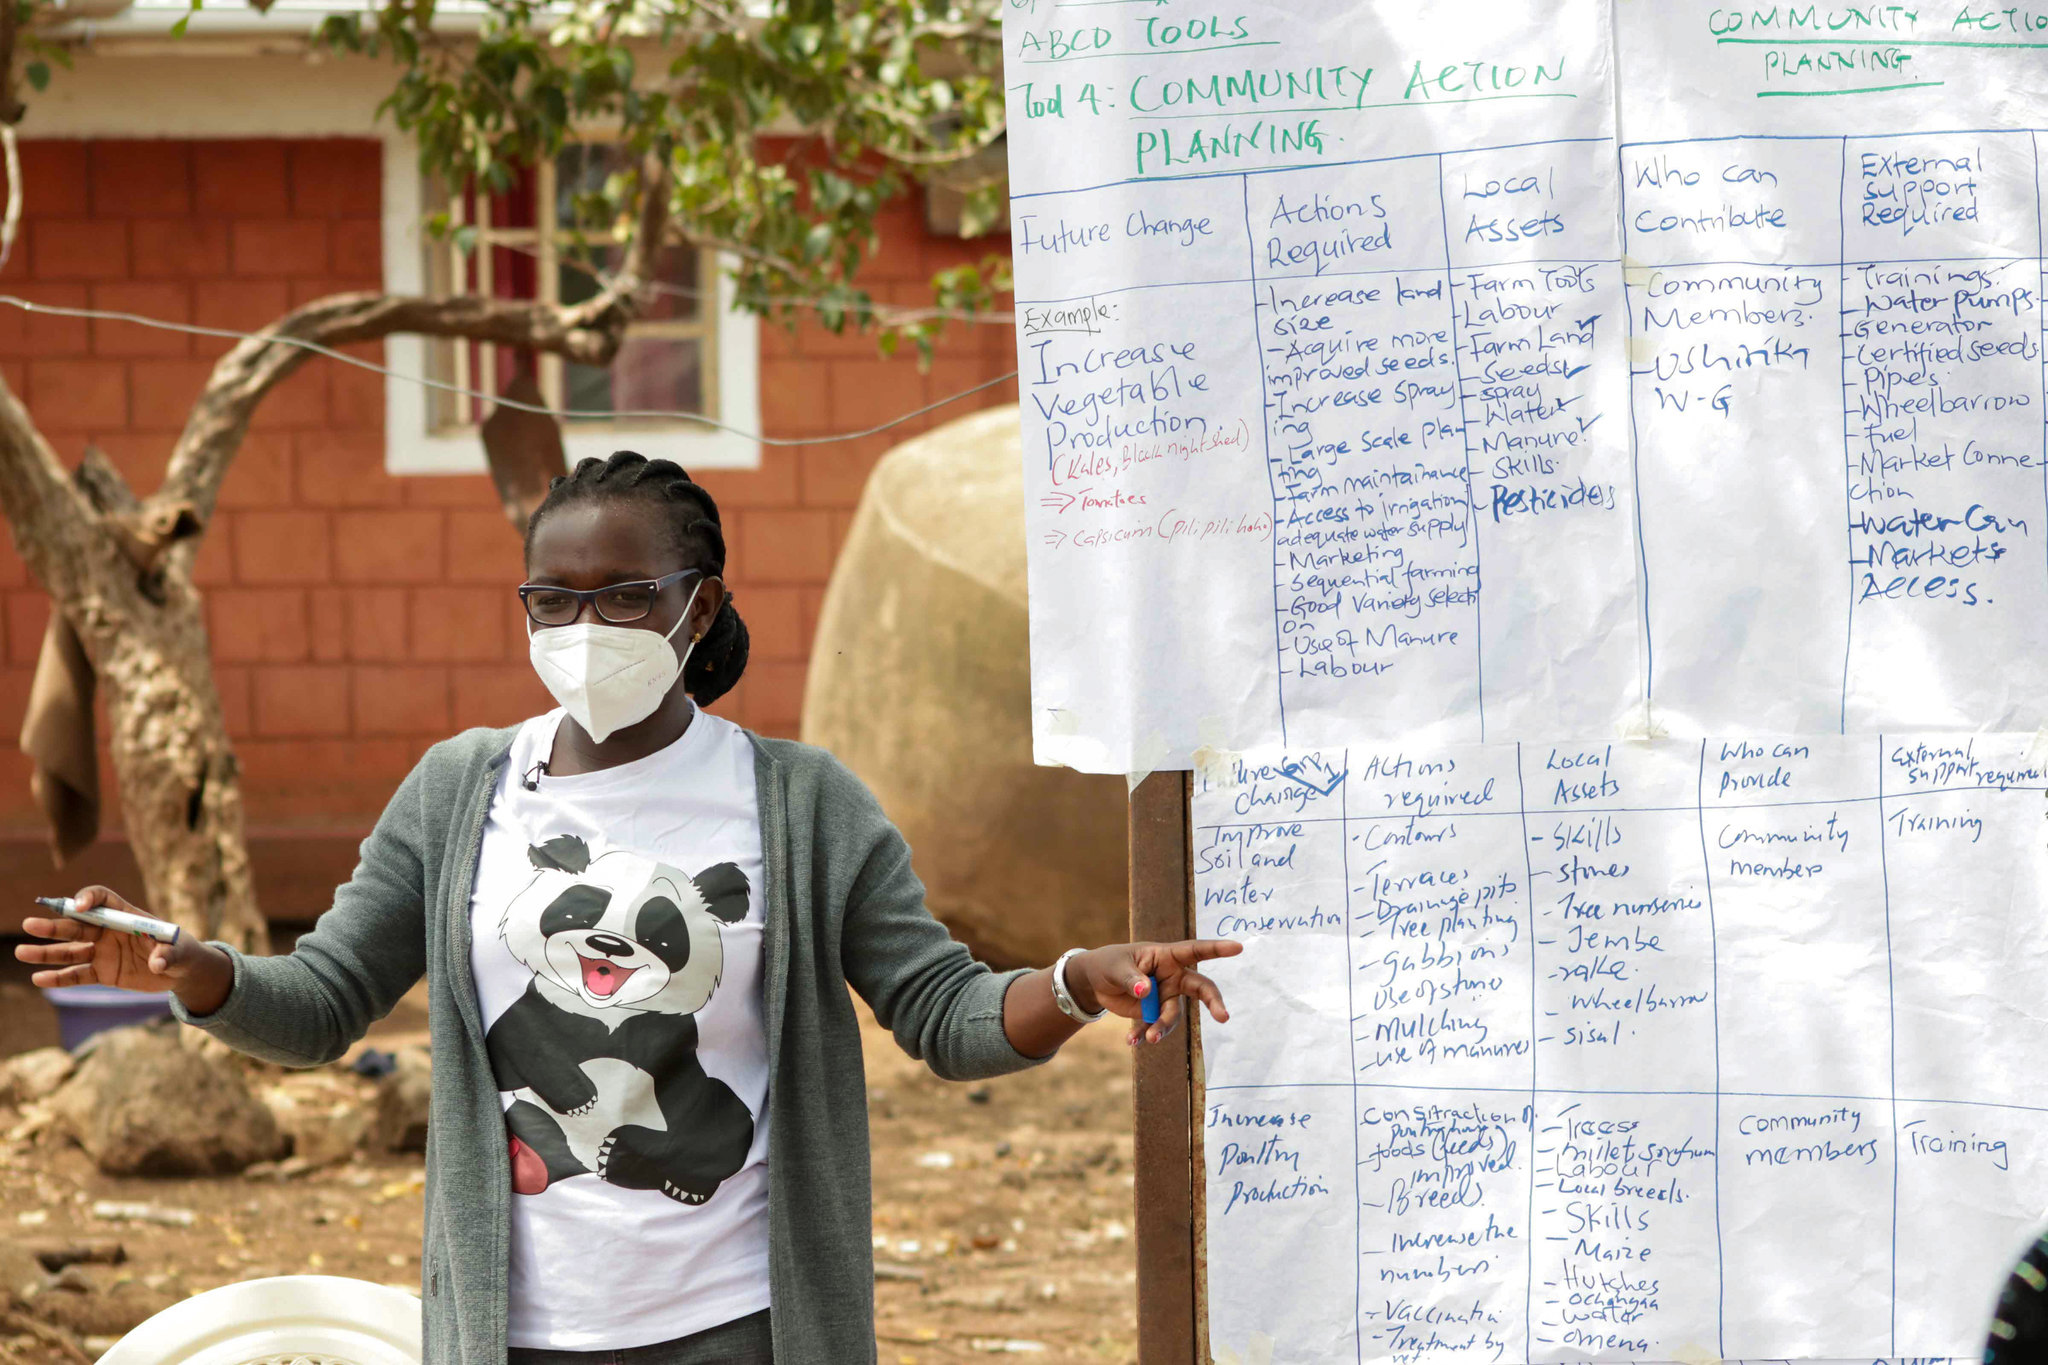 ABCD TOOLS
Tool 4: COMMUNITY ACTION
PLANNING.
Future Change
Actions
Required
Local
Assets
Example:
Increase
Vegetable
Production.
(Kales, Black nightshed)
⇒ Tomatoes
⇒ capsicum (pilipili hoho)
- Increase land
size
- Acquire more
improved seeds.
- Increase Spray
ing
- Large Scale plan
ting
- Farm maintainance
- Access to irrigation/
adequate water supply
- Marketing
- Sequential farming
- Good Variety selecti
on
- Use of Manure
- Labour
- Farm Tools
- Labour
- Farm Land ✓
- Seeds ✓
- spray
- Water ✓
- Manure. ✓
- SKILLS.
- Pesticides
COMMUNITY ACTIO
PLANNING.
Who can
Contribute
External
support
Required
- Community
Members.
- Ushirika
W-G
- Trainings.
- Water Pumps.
- Generator
- Certified seeds
- Pipes.
- Wheelbarrow
- Fuel
- Market Conne-
ction
- Water Can
- Markets
Access.
Future
Change
Actions
required
Local
Assets
Who can
provide
External
support required
Improve
Soil and
water
conservation
- Contours
- Terraces
- Drainage pits
- Tree planting
- gabbions
use of stone
- Mulching
- use of manures
- Skills
- stones
- Tree nurseries
- Jembe
- rake.
- Wheelbarrow
- Sisal.
Community
members
Training
Increase
Poultry
production
Construction of
foods (feeds)
improved.
- Breeds.
- Increase the
numbers
- Vaccination
- Treatment by
vet.
- Trees
- millet, sorghum
- Labour
- Local breeds.
- SKILLS
- Maize
- Hutches
- Ochongaa
- water
- Omena.
Community
members
Training
KN95